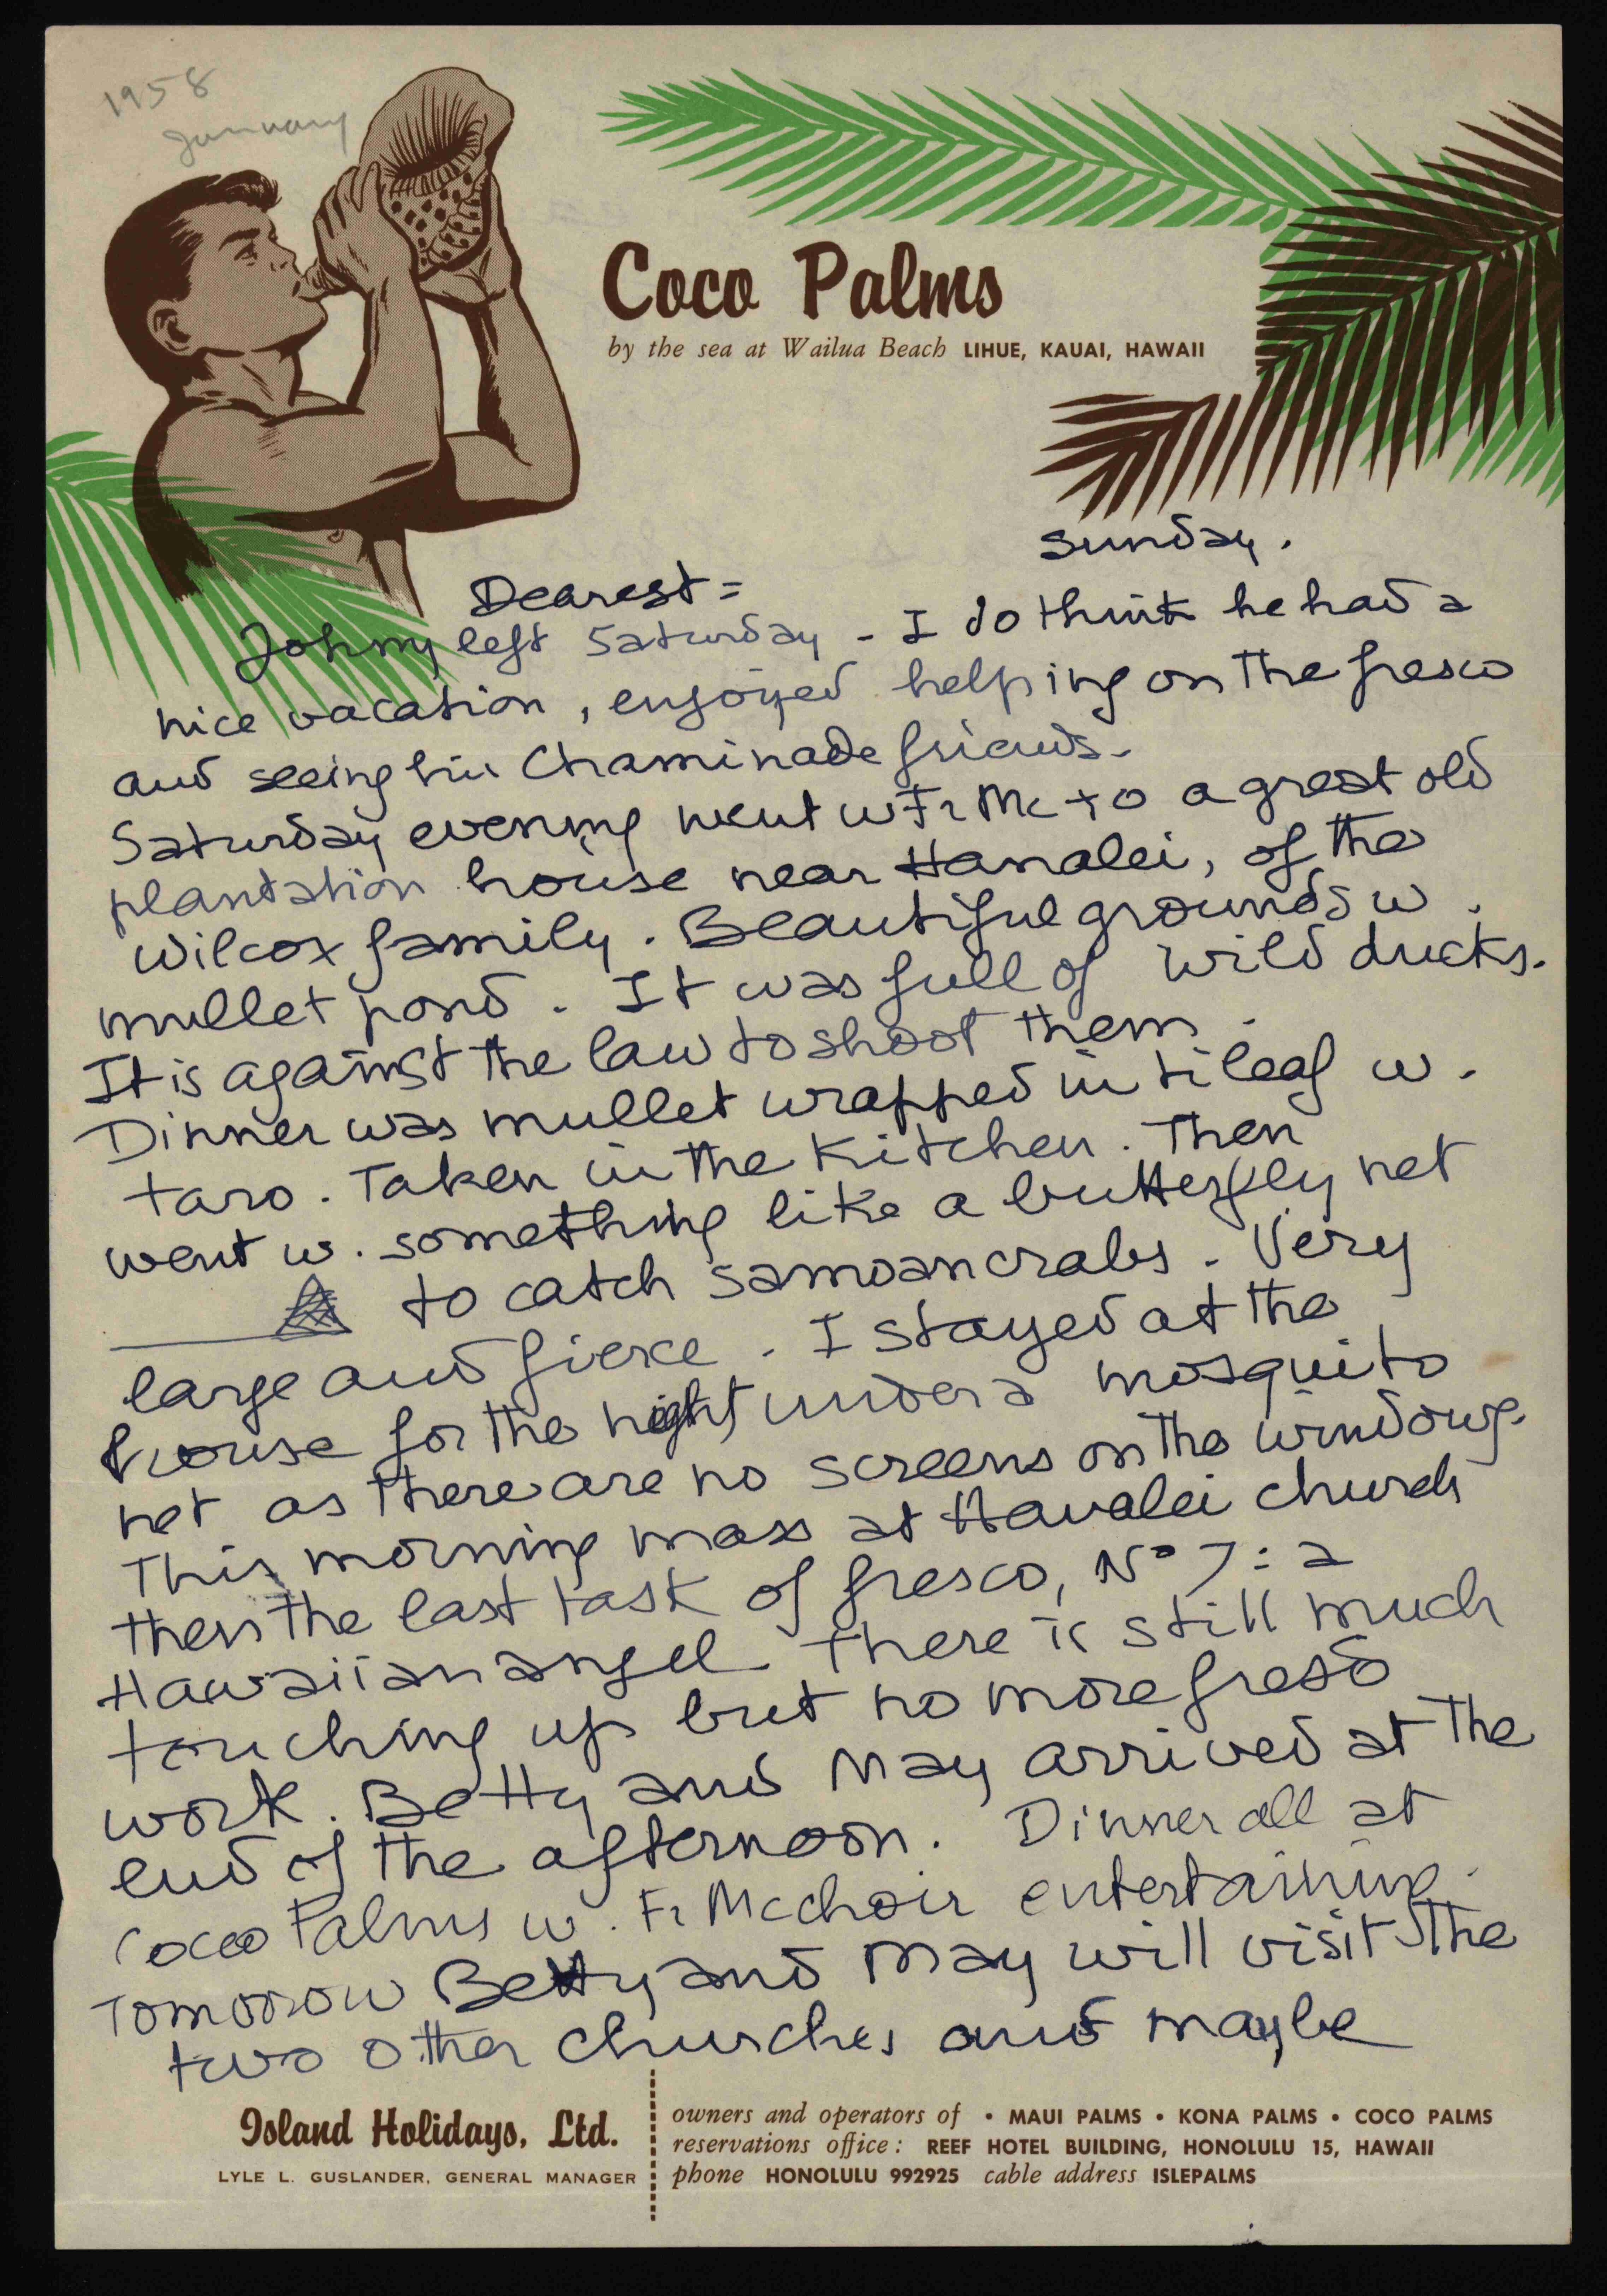 1958
January
Coco Palms
by the sea at Wailua Beach LIHUE, KAUAI, HAWAII
Sunday.
Dearest =
Johnny left Saturday - I do think he had a
nice vacation, enjoyed helping on the fresco
and seeing his Chaminade friends.
Saturday evening went w Fr Mc to a great old
plantation house near Hanalei, of the
Wilcox family. Beautiful grounds w.
mullet pond. It was full of wild ducks.
It is against the law to shoot them.
Dinner was mullet wrapped in ti leaf w.
taro. Taken in the kitchen. Then
went w. something like a butterfly net
to catch samoan crabs. Very
large and fierce. I stayed at the
house for the night under a mosquito
net as there are no screens on the windows.
This morning mass at Hanalei church
then the last task of fresco, Nº 7: a
Hawaiian angel. There is still much
touching up but no more fresco
work. Betty and May arrived at the
end of the afternoon. Dinner all at
Coco Palms w. Fr Mc choir entertaining.
Tomorrow Betty and May will visit the
two other churches and maybe
Island Holidays, Ltd.
LYLE L. GUSLANDER, GENERAL MANAGER
owners and operators of • MAUI PALMS • KONA PALMS • COCO PALMS
reservations office: REEF HOTEL BUILDING, HONOLULU 15, HAWAII
phone HONOLULU 992925 cable address ISLEPALMS